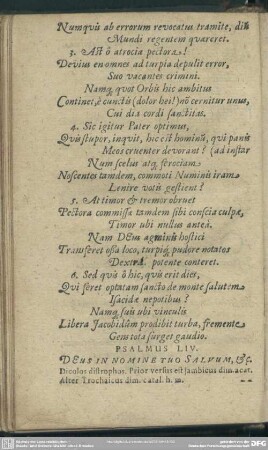 Numquis ab errorum revocatus tramite, diu
Mundi regentem quæreret.
3. Ast ô atrocia pectora!
Devius en omnes ad turpia depulit error,
Suo vacantes crimini.
Namq; quot Orbis hic ambitus
Continet, è cunctis (dolor hei!) nō cernitur unus,
Cui dia cordi sanctitas.
4. Sic igitur Pater optimus,
Quis stupor, inquit, hic est hominū, qui panis
Meos cruenter devorant? (ad instar
Num scelus atq; ferociam
Noscentes tamdem, commoti Numinis iram
Lenire votis gestient?
5. At timor & tremor obruet
Pectora commissa tamdem sibi conscia culpæ,
Timor ubi nullus antea.
Nam DEus agminis hostici
Transferet ossa loco, turpiq; pudore notatos
Dextra potente conteret.
6. Sed quis ô hic, quis erit dies,
Qui feret optatam sancto de monte salutem
Isacidæ nepotibus?
Namq; suis ubi vinculis
Libera Jacobidûm prodibit turba, fremente
Gens tota surget gaudio.
PSALMUS LIV.
DEUS IN NOMINE TUO SALVUM, &c.
Dicolos distrophos. Prior versus est jambicus dim. acat.
Alter Trochaicus dim. catal. h. m.